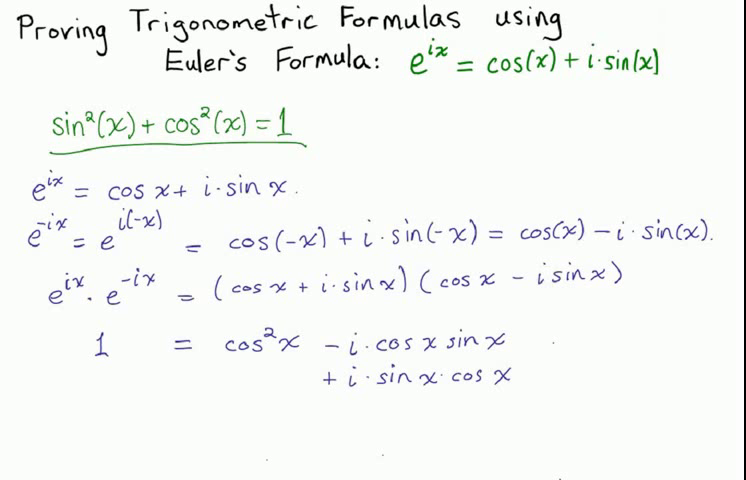 Proving Trigonometric Formulas using
Euler's Formula: e^{ix} = cos(x) + i·sin(x)
sin²(x) + cos²(x) = 1
e^{ix} = cos x + i·sin x.
e^{-ix} = e^{i(-x)} = cos(-x) + i·sin(-x) = cos(x) - i·sin(x).
e^{ix}·e^{-ix} = (cos x + i·sin x)(cos x - i sin x)
1 = cos²x - i·cos x sin x
+ i·sin x·cos x